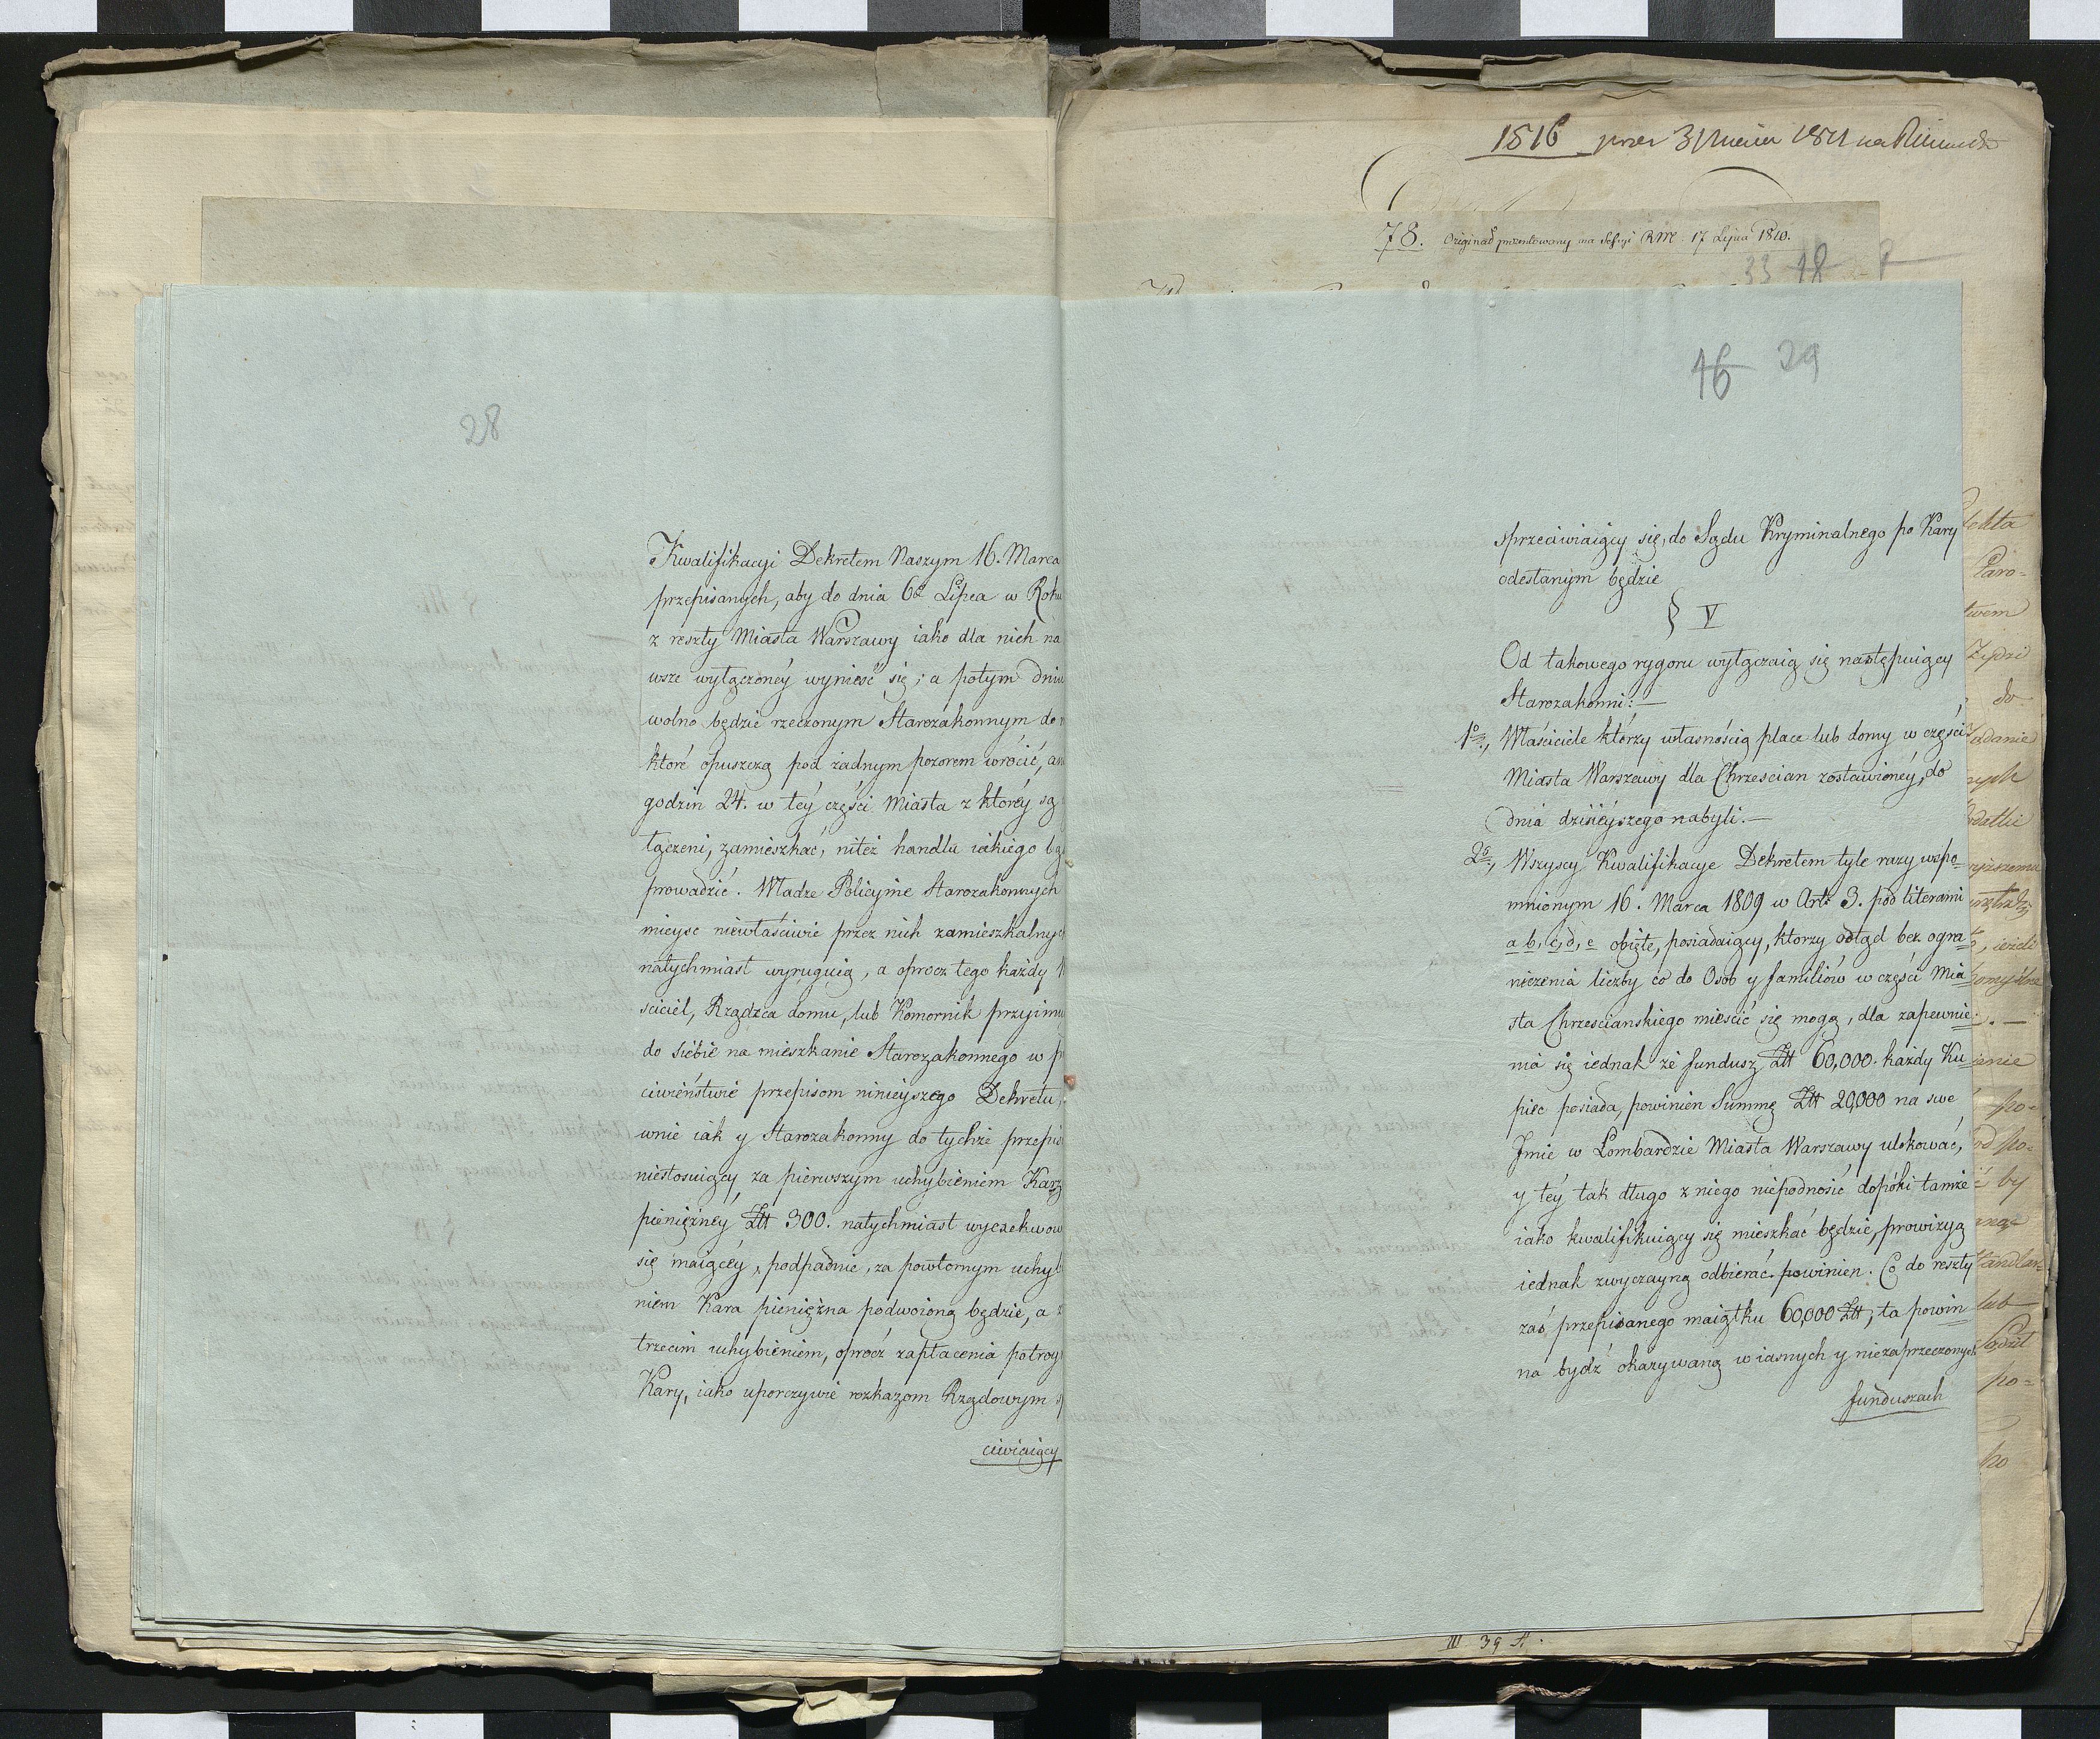 28
Kwalifikacyi Dekretem Naszym 16. Marca
przepisanych, aby do dnia 6º Lipca w Roku
z reszty Miasta Warszawy iako dla nich na
wsze wyłączoney wynieść się; a potym dniu
wolno będzie rzeczonym Starozakonnym do
które opuszczą pod żadnym pozorem wrócić, an
godzin 24. w téy części Miasta z któréy są
łączeni, zamieszkać, niteż handlu iakiego bą
prowadzić. Władze Policyine Starozakonnych
mieysc niewłaściwie przez nich zamieszkalnych
natychmiast wyruguią, a oprocz tego każdy W
sciciel, Rządzca domu, lub Komornik przyimu
do siebie na mieszkanie Starozakonnego w p
ciwieństwie przepisom ninieyszego Dekretu,
wnie iak y Starozakonny do tychże przepis
niestosuiący za pierwszym uchybieniem Karz
pieniężney Złł 300. natychmiast wyexekwow
się maiącéy, podpadnie, za powtornym uchyb
niem Kara pieniężna podwoioną będzie, a z
trzecim uchybieniem, oprócz zapłacenia potroy
Kary, iako uporczywie rozkazom Rządowym s
ciwiaiący
1816 przez
78. Original prezentowany na Sessyi RM. 17 Lipca 1810.
33 18
16 29
sprzeciwiaiący się, do Sądu Kryminalnego po Kary
odesłanym będzie
§ V
Od takowego rygoru wyłączaią się następuiący
Starozakonni: —
1º, Właściciele którzy własnością place lub domy w części
Miasta Warszawy dla Chrzescian zostawionéy, do
dnia dzisiéyszego nabyli. —
2º, Wszyscy Kwalifikacye Dekretem tyle razy wspo-
mnionym 16. Marca 1809 w Art: 3. pod literami
a b, c, d, e obięte, posiadaiący, ktorzy odtąd bez ogra=
niczenia liczby co do Osób y familiów w części Mia=
sta Chrzescianskiego mieścić się mogą, dla zapewnie=
nia się iednak że fundusz Złł 60,000. każdy Ku=
piec posiada, powinien Summę Złł 20,000 na swe
Jmie w Lombardzie Miasta Warszawy ulokować,
y téy tak długo z niego niepodnosić dopóki tamże
iako kwalifikuiący się mieszkać będzie, prowizyą
iednak zwyczayną odbierać powinien. Co do reszty
zaś przepisanego maiątku 60,000 Złł, ta powin=
na bydź okazywaną w iasnych y niezaprzeczonych
funduszach
Żydzi
do
po=
by
lub
po=
po
III 39 A.